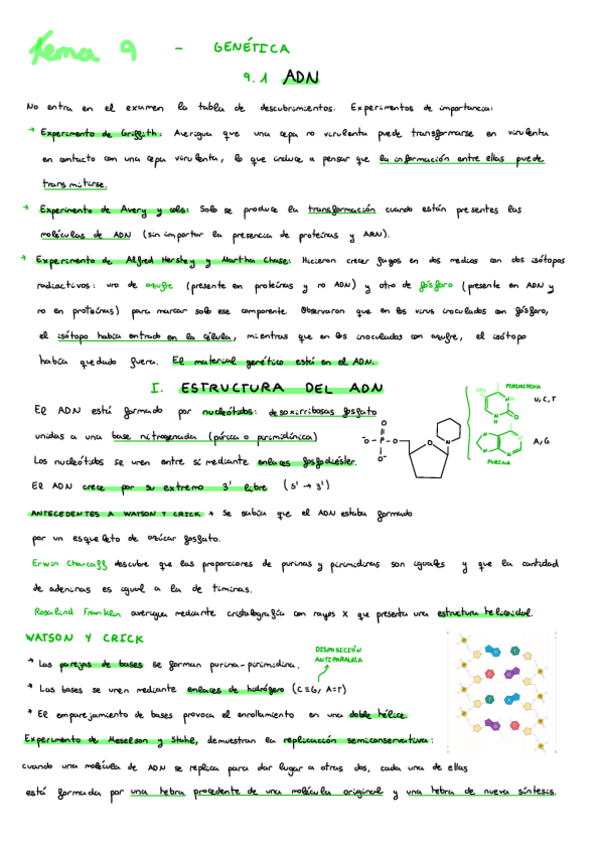 Tema 9 - GENÉTICA
9.1 ADN
No entra en el examen la tabla de descubrimientos. Experimentos de importancia:
→ Experimento de Griffith: Averigua que una cepa no virulenta puede transformarse en virulenta
en contacto con una cepa virulenta, lo que induce a pensar que la información entre ellas puede
transmitirse.
→ Experimento de Avery y cols: Solo se produce la transformación cuando están presentes las
moléculas de ADN (sin importar la presencia de proteínas y ARN).
→ Experimento de Alfred Hershey y Martha Chase: Hicieron crecer fagos en dos medios con dos isótopos
radiactivos: uno de azufre (presente en proteínas y no ADN) y otro de fósforo (presente en ADN y
no en proteínas) para marcar solo ese componente. Observaron que en los virus inoculados con fósforo,
el isótopo había entrado en la célula, mientras que en los inoculados con azufre, el isótopo
había quedado fuera. El material genético está en el ADN.
I. ESTRUCTURA DEL ADN
El ADN está formado por nucleótidos: desoxirribosas fosfato
unidas a una base nitrogenada (púrica o pirimidínica)
Los nucleótidos se unen entre sí mediante enlaces fosfodiéster.
El ADN crece por su extremo 3' libre (5' → 3')
PIRIMIDINA
U, C, T
A, G
PURINA
ANTECEDENTES A WATSON Y CRICK → Se sabía que el ADN estaba formado
por un esqueleto de azúcar fosfato.
Erwin Chargaff descubre que las proporciones de purinas y pirimidinas son iguales y que la cantidad
de adeninas es igual a la de timinas.
Rosalind Franklin averigua mediante cristalografía con rayos X que presenta una estructura helicoidal.
WATSON Y CRICK
DISPOSICIÓN
ANTIPARALELA
→ Las parejas de bases se forman purina-pirimidina.
→ Las bases se unen mediante enlaces de hidrógeno (C≡G, A=T)
→ El emparejamiento de bases provoca el enrollamiento en una doble hélice.
Experimento de Meselson y Stahl, demuestran la replicación semiconservativa:
cuando una molécula de ADN se replica para dar lugar a otras dos, cada una de ellas
está formada por una hebra procedente de una molécula original y una hebra de nueva síntesis.